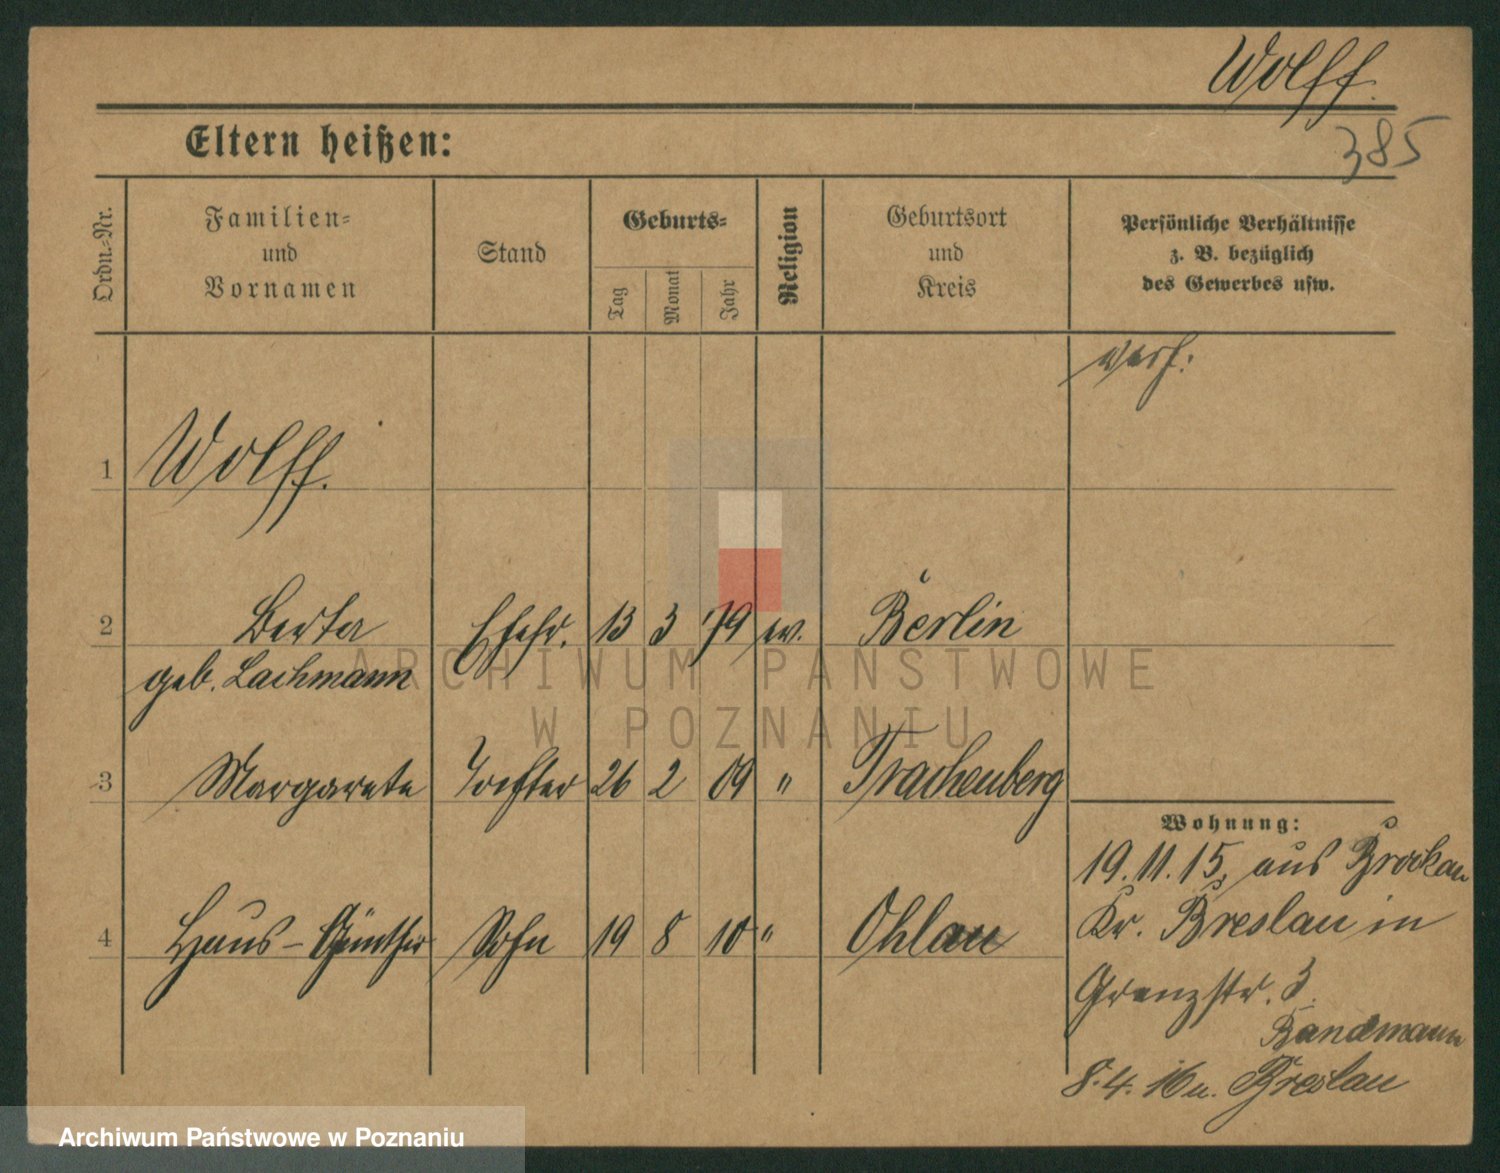 Wolff.
385
Eltern heißen:
Ordn.-Nr.
Familien-
und
Vornamen
Stand
Geburts-
Tag
Monat
Jahr
Religion
Geburtsort
und
Kreis
Persönliche Verhältnisse
z. B. bezüglich
des Gewerbes usw.
verh:
1 Wolff.
2 Berta Ehefr. 13 3 79 ev. Berlin
geb. Lachmann
3 Margarete Tochter 26 2 09 " Trachenberg
4 Hans-Günther Sohn 19 8 10 " Ohlau
Wohnung:
19.11.15. aus Brockau
Kr. Breslau in
Grenzstr. 3.
Bandmann
8.4.16 n. Breslau
ARCHIWUM PAŃSTWOWE
W POZNANIU
Archiwum Państwowe w Poznaniu